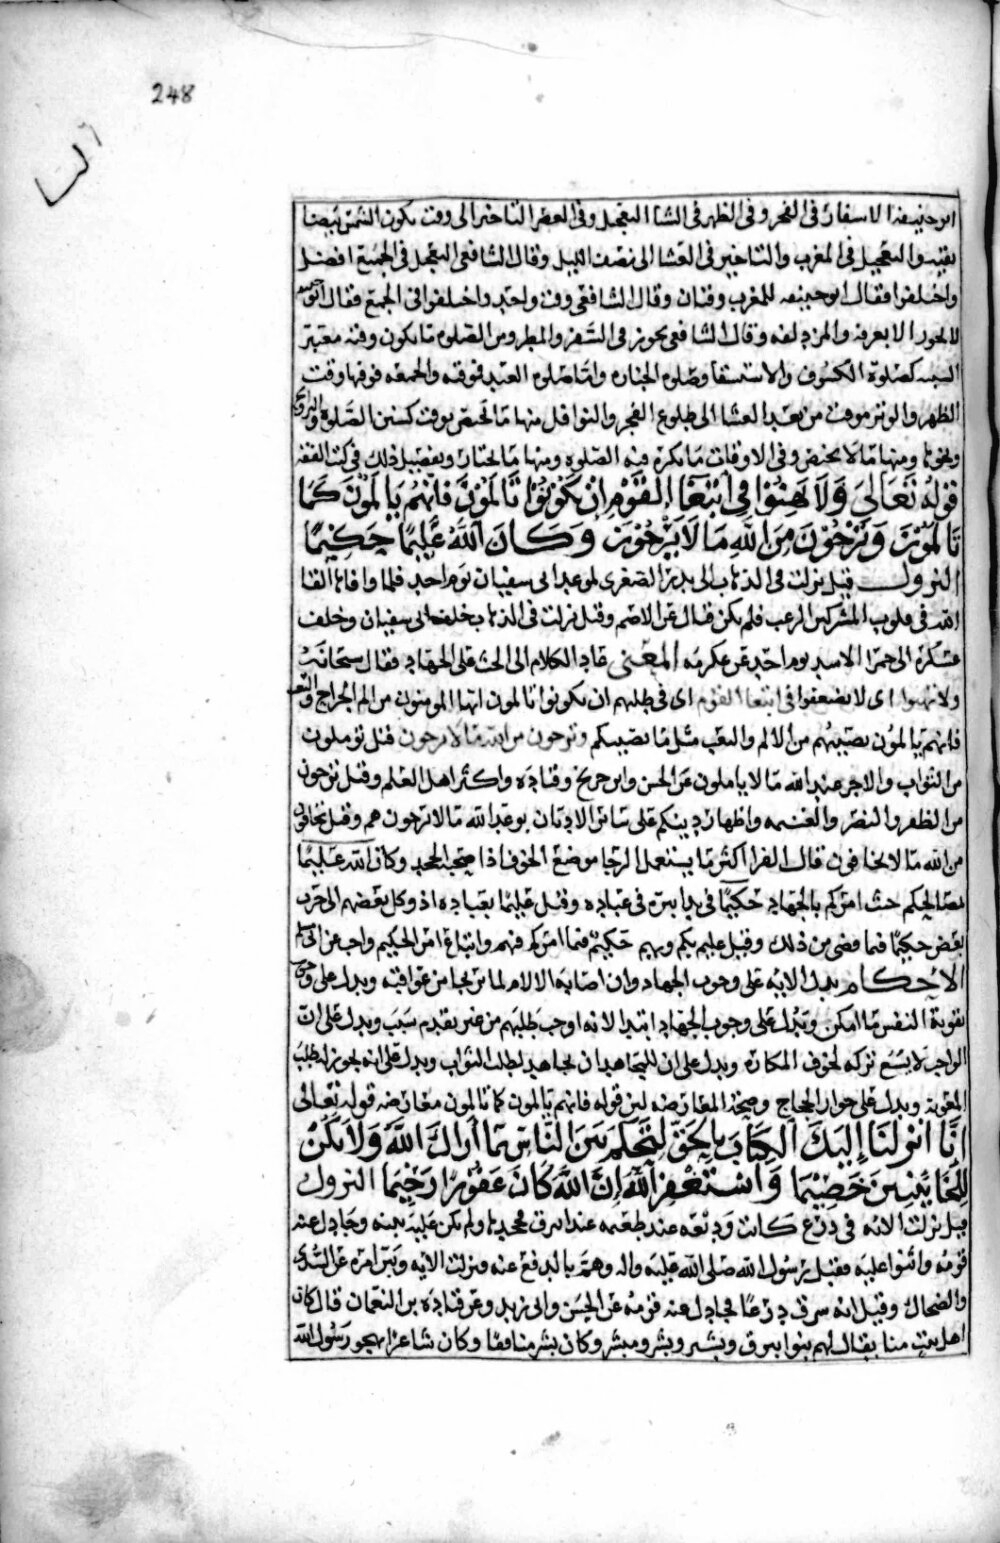 248
النسا
ابو حنيفه الاسفار في الفجر وفي الظهر في الشتا التعجيل وفي العصر التاخير الى وقت يكون الشمس بيضا
نقيه والتعجيل في المغرب والتاخير في العشا الى نصف الليل وقال الشافعي التعجيل في الجميع افضل
واختلفوا فقال ابو حنيفه للمغرب وقتان وقال الشافعي وقت واحد واختلفوا في الجمع فقال ابو حنيفه
لا يجوز الا بعرفه والمزدلفه وقال الشافعي يجوز في السفر والمطر ومن الصلوه ما يكون وقته معتبر
السبب كصلوة الكسوف والاستسقا وصلوه الجنازه واما صلوه العيد فوقته والجمعه فوقتها وقت
الظهر والوتر موقت من بعد العشا الى طلوع الفجر والنوافل منها ما تختص بوقت كسنن الصلوه والتراويح
ونحوها ومنها ما لا يختص وفي الاوقات ما يكره فيه الصلوه ومنها ما يختار وتفصيل ذلك في كتب الفقه
قوله تعالى ولا تهنوا في ابتغا القوم ان تكونوا تالمون فانهم يالمون كما
تالمون وترجون من الله ما لا يرجون وكان الله عليما حكيما
النزول قيل نزلت في الذهاب الى بدر الصغرى لموعد ابي سفيان يوم احد فلما وافاها القا
الله في قلوب المشركين الرعب فلم يكن قتال عن الاصم وقيل نزلت في الذهاب خلف ابي سفيان وخلف
عسكره الى حمرا الاسد يوم احد عن عكرمه المعنى عاد الكلام الى الحث على الجهاد فقال سبحانه
ولا تهنوا اي لا تضعفوا في ابتغا القوم اي في طلبهم ان تكونوا تالمون ايها المومنون من الم الجراح والتعب
فانهم يالمون يصيبهم من الالم والتعب مثل ما نصيبكم وترجون من الله ما لا يرجون قيل تؤملون
من الثواب والاجر عند الله ما لا ياملون عن الحسن وابن جريج وقتادة واكثر اهل العلم وقيل ترجون
من الظفر والنصر والغنيمه واظهار دينكم على سائر الاديان بوعد الله ما لا يرجون هم وقيل تخافون
من الله ما لا يخافون قال الفرا اكثر ما يستعمل الرجا موضع الخوف اذا صحبه الجحد وكان الله عليما
بمصالحكم حيث امركم بالجهاد حكيما في تدابيره في عباده وقيل عليما بعباده اذ وكل بعضهم الى حرب
بعض حكيما فيما قضى من ذلك وقيل عليم بكم وبهم حكيم فيما امركم فيهم واتباع امر الحكيم واجب
الاحكام يدل الايه على وجوب الجهاد وان اصابه الالام لما يرجا من عواقبه ويدل على وجوب
تقوية النفس ما امكن ويدل على وجوب الجهاد ابتدا لانه اوجب طلبهم من غير تقدم سبب ويدل على ان
الواجب لا يسع تركه لخوف المكاره ويدل على ان للمجاهد ان يجاهد لطلب الثواب ويدل على انه يجوز له طلب
المثوبة ويدل على جواز الحجاج وصحة المعارضه لان قوله فانهم يالمون كما تالمون معارضه قوله تعالى
انا انزلنا اليك الكتاب بالحق لتحكم بين الناس بما اراك الله ولا تكن
للخاينين خصيما واستغفر الله ان الله كان غفورا رحيما النزول
قيل نزلت الايه في درع كانت وديعه عند طعمه عند ابيرق فجحدها ولم تكن عليه بينه وجادل عنه
قومه واثنوا عليه فقبل رسول الله صلى الله عليه واله وهم بالدفع عنه فنزلت الايه وبين امره عن السدي
والضحاك وقيل انه سرق درعا فجادل عنه قومه عن الحسن وابي زيد وعن قتاده بن النعمان قال كان
اهل بيت منا يقال لهم بنوا ابيرق وبشير وبشر ومبشر وكان بشر منافقا وكان شاعرا يهجو رسول الله